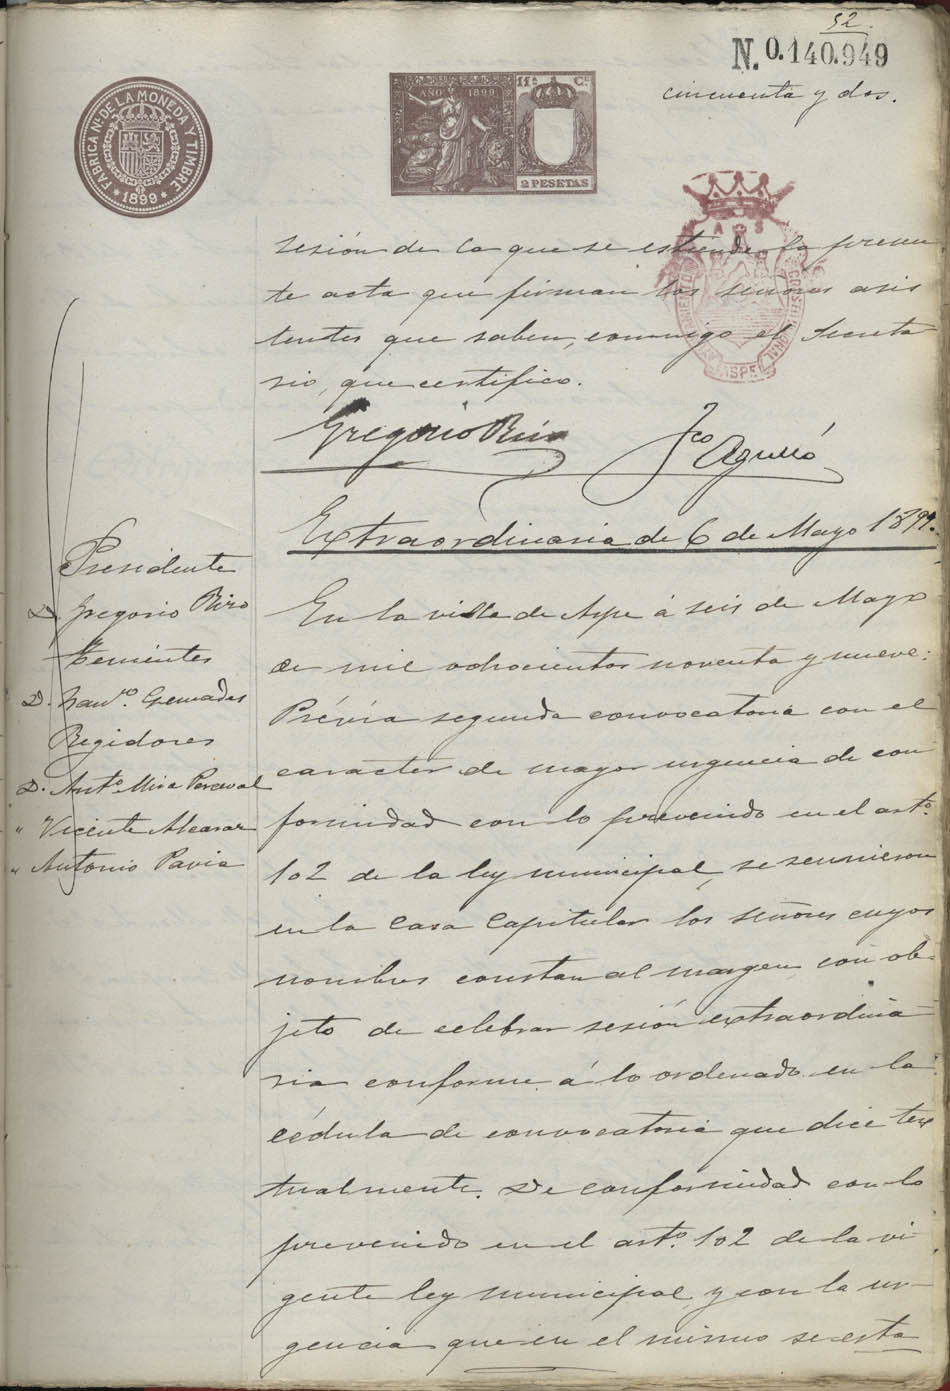 52.
N. 0.140.949
cincuenta y dos.
FABRICA Nl. DE LA MONEDA Y TIMBRE
* 1899 *
AÑO 1899
11ª Cª
2 PESETAS
sesión de la que se estiende la presen
te acta que firman los señores asis
tentes que saben, conmigo el Secreta
rio, que certifico.
Gregorio Rizo
Fco Agulló
Extraordinaria de 6 de Mayo 1899.
Presidente
D. Gregorio Rizo
Tenientes
D. Franco. Cremades
Regidores
D. Antº. Mira Perceval
" Vicente Alcaraz
" Antonio Pavia
En la villa de Aspe á seis de Mayo
de mil ochocientos noventa y nueve:
Prévia segunda convocatoria con el
caracter de mayor urgencia de con
formidad con lo prevenido en el artº.
102 de la ley municipal, se reunieron
en la Casa Capitular los señores cuyos
nombres constan al margen, con ob-
jeto de celebrar sesión extraordina
ria conforme á lo ordenado en la
cédula de convocatoria que dice tex
tualmente. De conformidad con lo
prevenido en el artº. 102 de la vi
gente ley municipal y con la ur-
gencia que en el mismo se esta